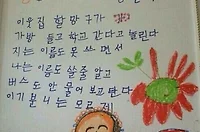 이웃집 할방구가
가방 들고 학교 간다고 놀린다
지는 이름도 못 쓰면서
나는 이름도 쓸줄 알고
버스도 안 물어보고 탄다
이기 분니는 모르제